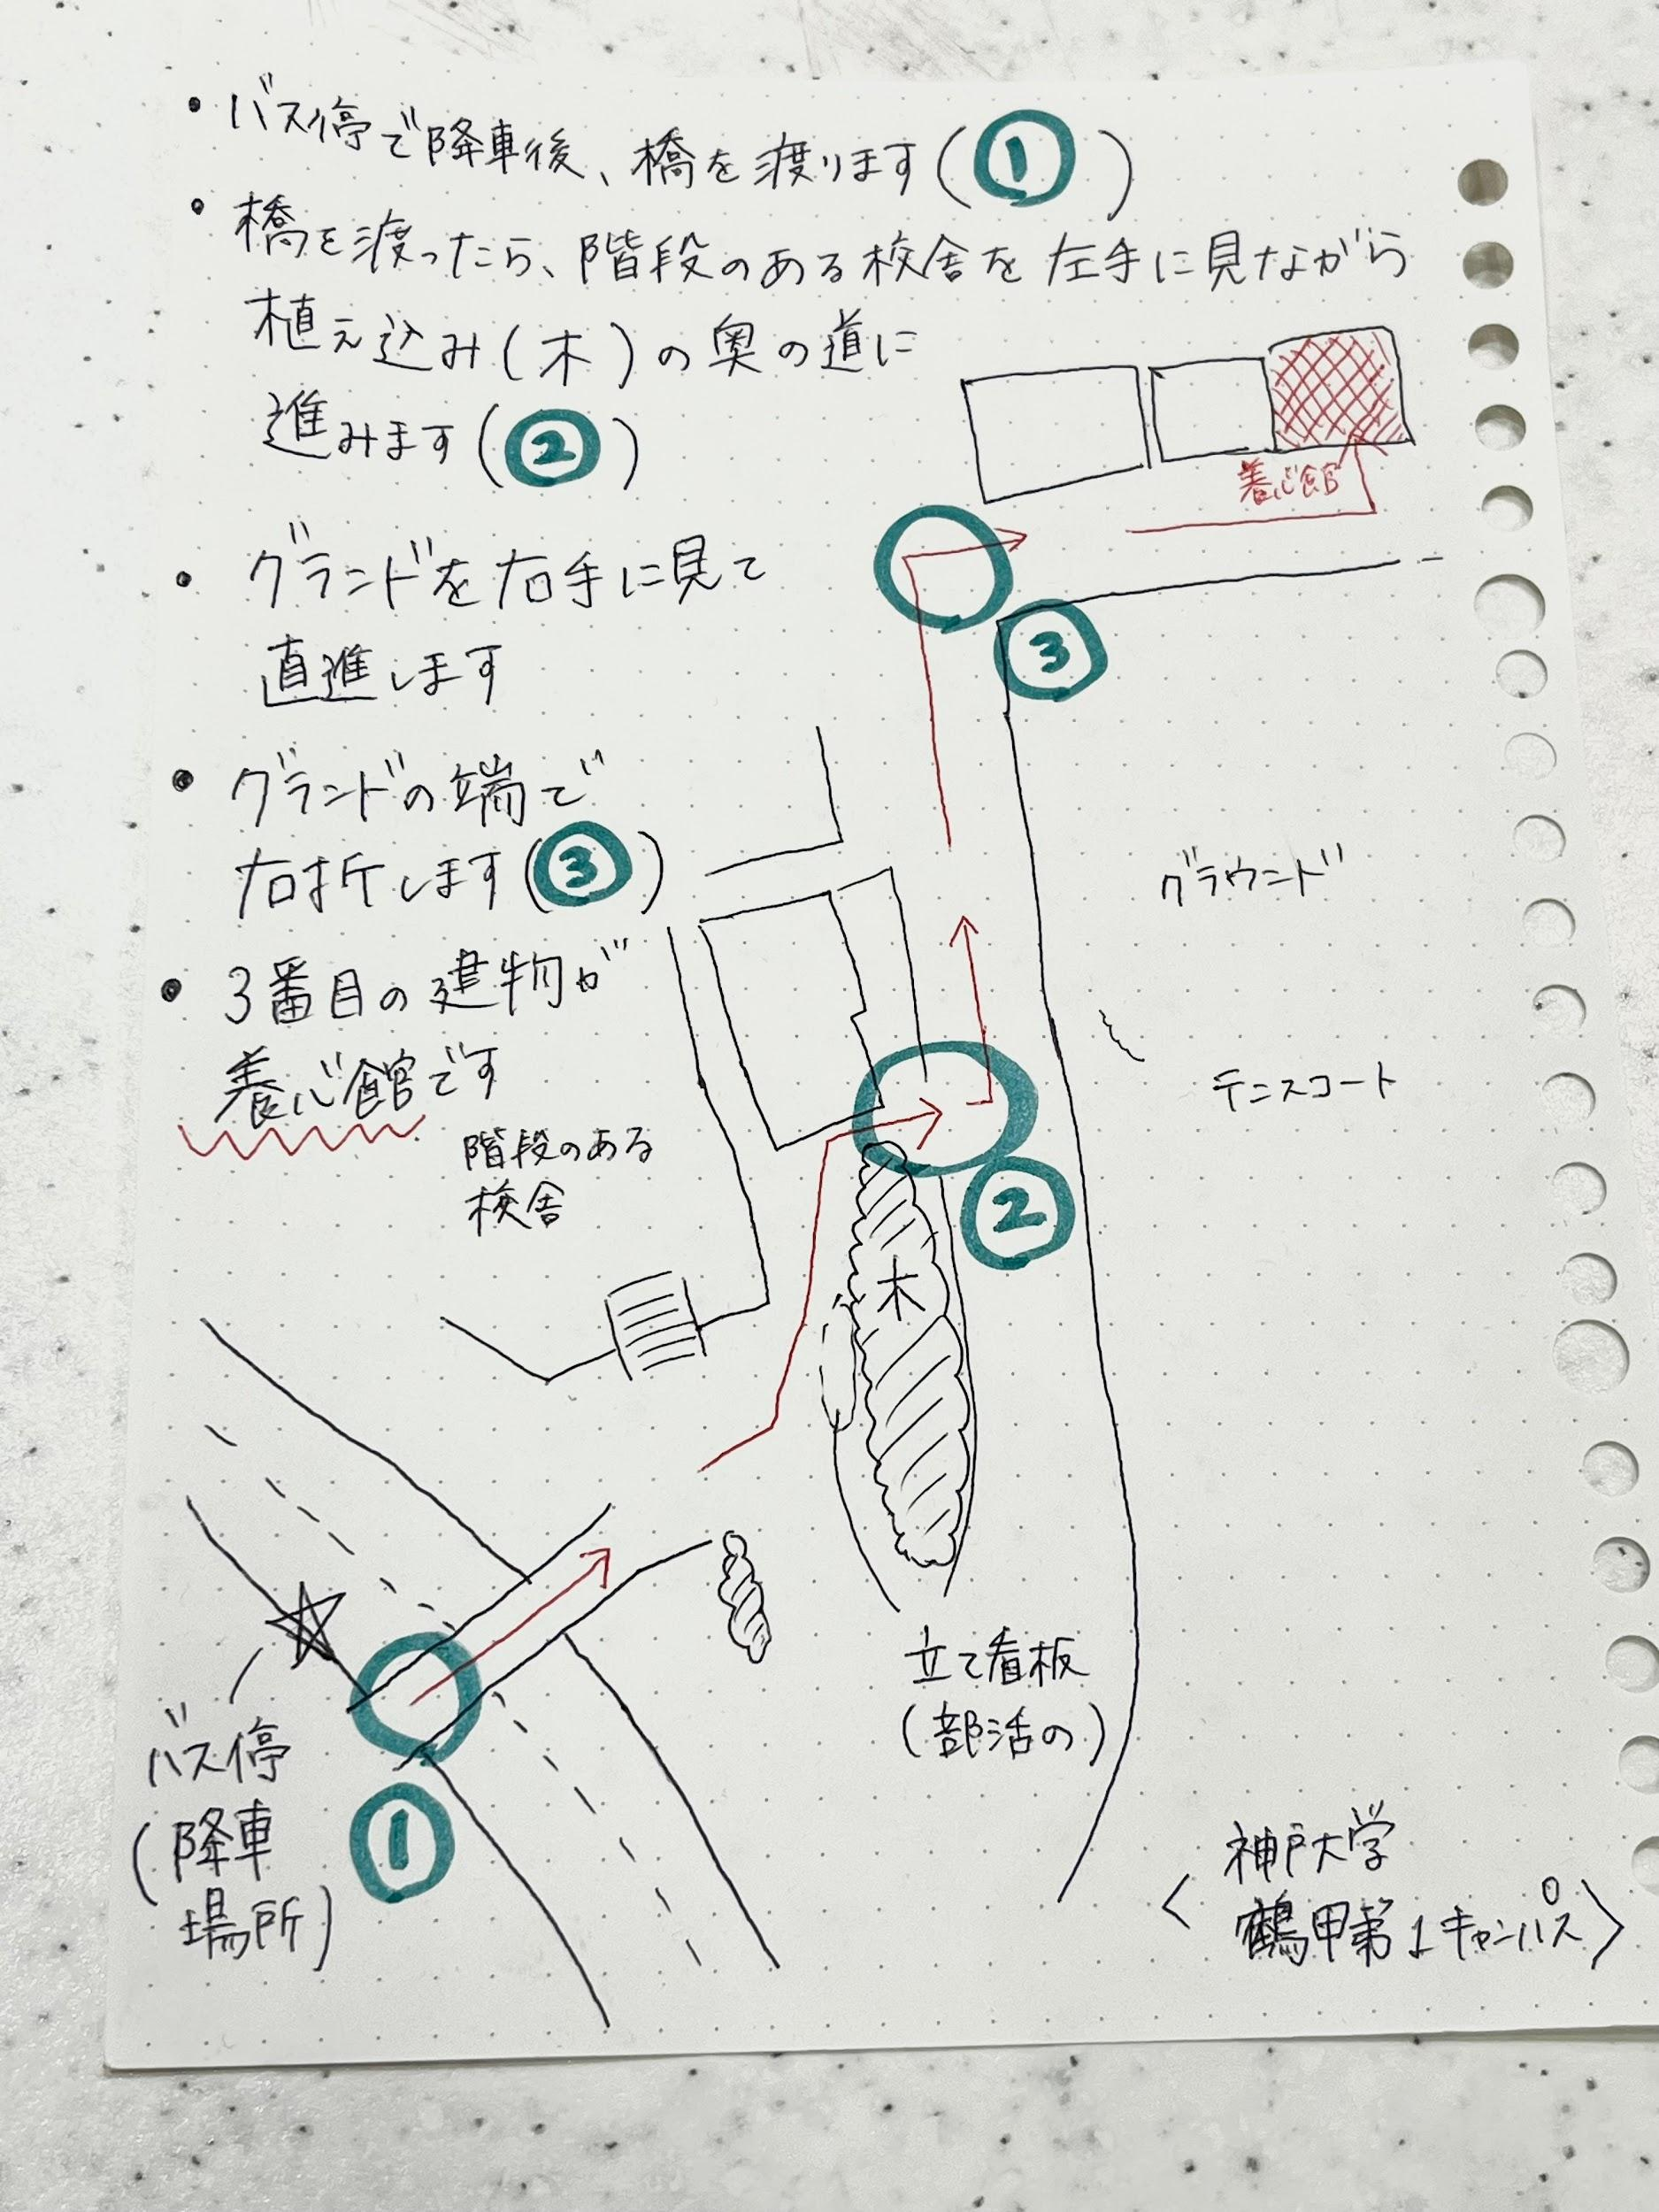 ・バス停で降車後、橋を渡ります(①)
・橋を渡ったら、階段のある校舎を左手に見ながら
植え込み(木)の奥の道に
進みます(②)
・グランドを右手に見て
直進します
・グランドの端で
右折します(③)
・3番目の建物が
養心館です
養心館
③
グラウンド
テニスコート
階段のある
校舎
②
木
立て看板
(部活の)
バス停
(降車
場所)
①
<神戸大学
鶴甲第1キャンパス>